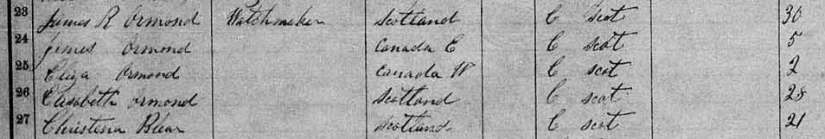 23 James R Ormond Watchmaker Scotland C Scot 30
24 James Ormond Canada E C Scot 5
25 Eliza Ormond Canada W C Scot 2
26 Elisabeth Ormond Scotland C Scot 28
27 Christina Blear Scotland C Scot 21